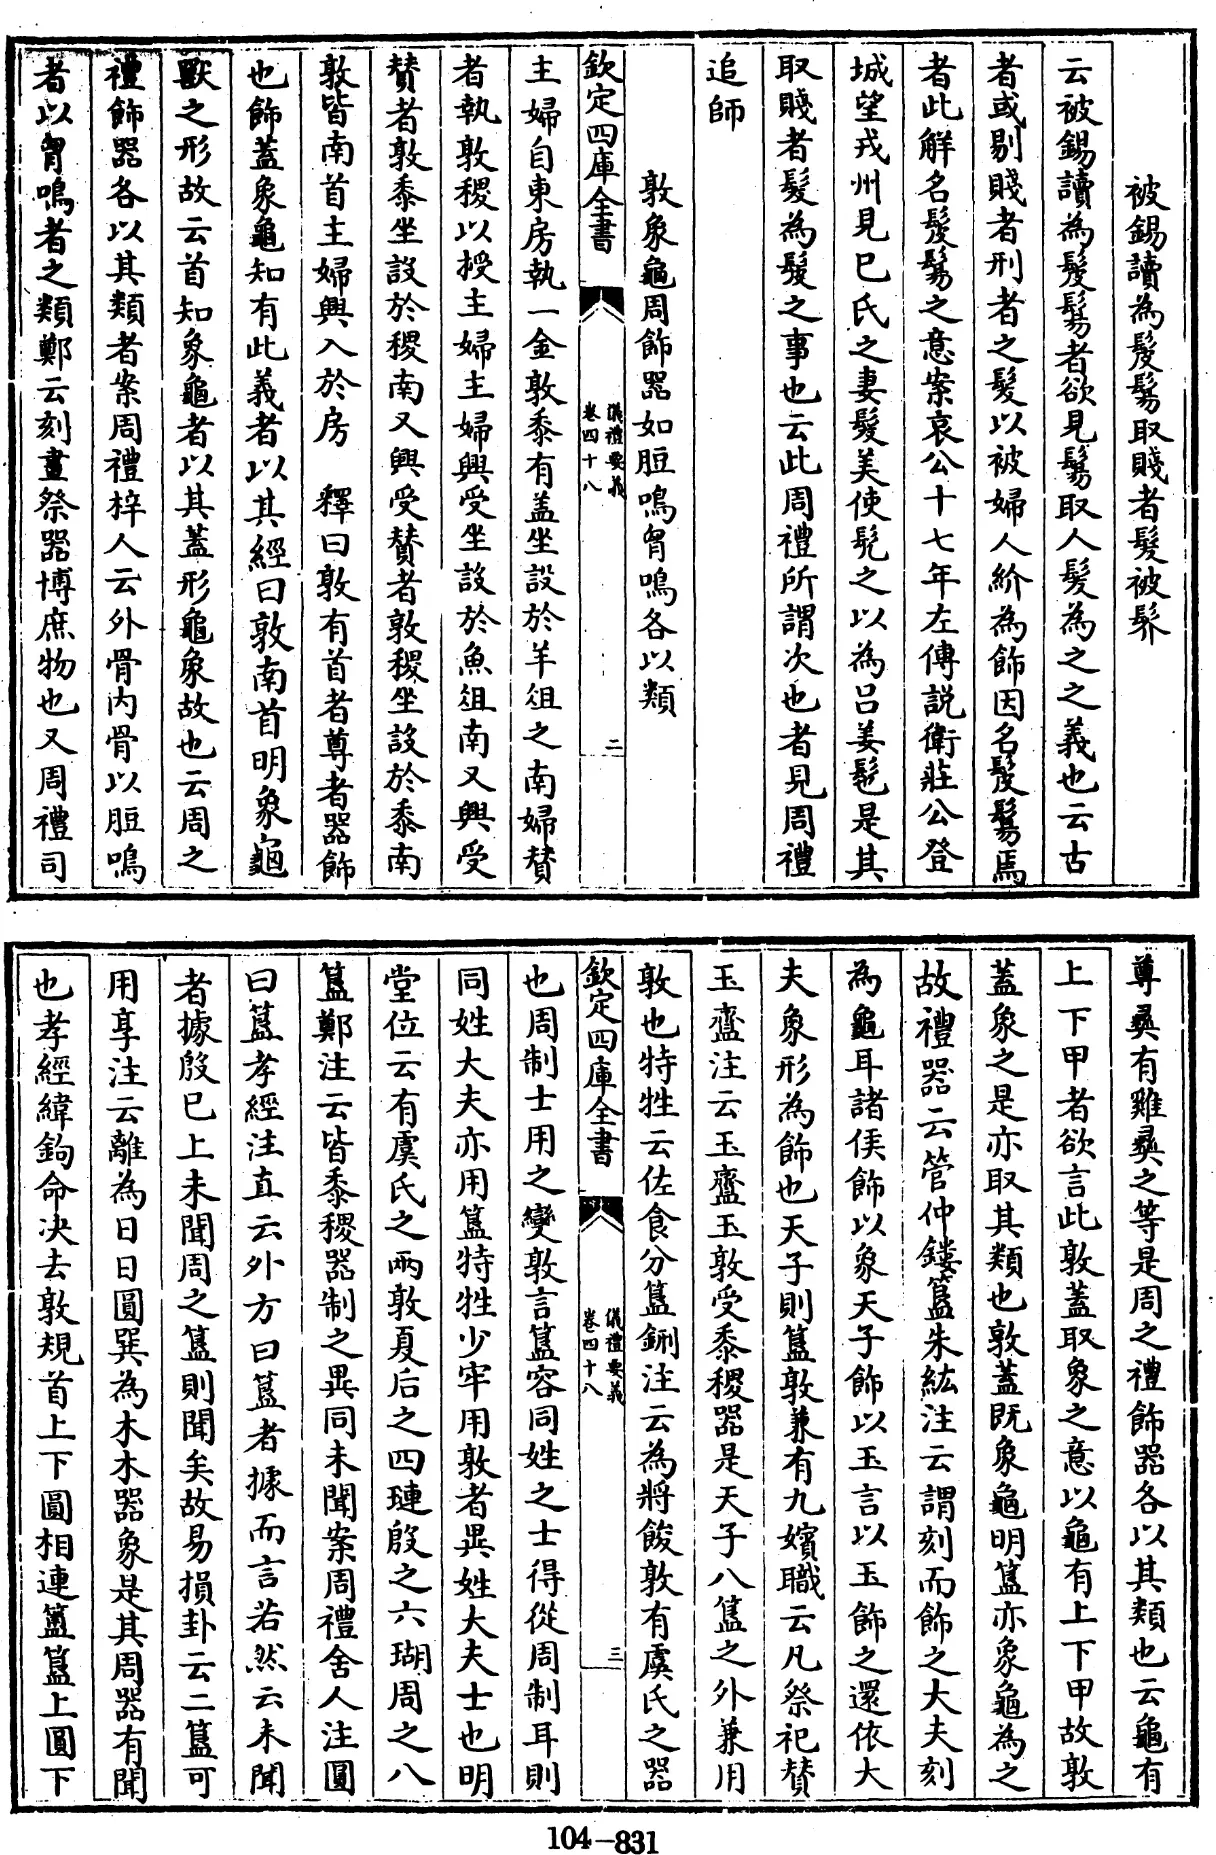 被錫讀為髲鬄取賤者髮被髤
云被錫讀為髲鬄者欲見鬄取人髮為之之義也云古
者或剔賤者刑者之髮以被婦人紒為飾因名髲鬄焉
者此解名髲鬄之意案哀公十七年左傳説衛莊公登
城望戎州見已氏之妻髮美使髠之以為呂姜髢是其
取賤者髮為髲之事也云此周禮所謂次也者見周禮
追師
敦象龜周飾器如脰鳴胷鳴各以類
欽定四庫全書
儀禮要義
卷四十八
二
主婦自東房執一金敦黍有盖坐設於羊俎之南婦賛
者執敦稷以授主婦主婦興受坐設於魚俎南又興受
賛者敦黍坐設於稷南又興受賛者敦稷坐設於黍南
敦皆南首主婦興入於房 釋曰敦有首者尊者器飾
也飾盖象龜知有此義者以其經曰敦南首明象龜
獸之形故云首知象龜者以其蓋形龜象故也云周之
禮飾器各以其類者案周禮梓人云外骨内骨以脰鳴
者以胷鳴者之類鄭云刻畫祭器博庶物也又周禮司
尊彞有雞彞之等是周之禮飾器各以其類也云龜有
上下甲者欲言此敦蓋取象之意以龜有上下甲故敦
蓋象之是亦取其類也敦蓋既象龜明簋亦象龜為之
故禮器云管仲鏤簋朱紘注云謂刻而飾之大夫刻
為龜耳諸侯飾以象天子飾以玉言以玉飾之還依大
夫象形為飾也天子則簋敦兼有九嬪職云凡祭祀賛
玉齍注云玉齍玉敦受黍稷器是天子八簋之外兼用
敦也特牲云佐食分簋鉶注云為將餕敦有虞氏之器
欽定四庫全書
儀禮要義
卷四十八
三
也周制士用之變敦言簋容同姓之士得從周制耳則
同姓大夫亦用簋特牲少牢用敦者異姓大夫士也明
堂位云有虞氏之兩敦夏后之四璉殷之六瑚周之八
簋鄭注云皆黍稷器制之異同未聞案周禮舍人注圓
曰簋孝經注直云外方曰簋者據而言若然云未聞
者據殷已上未聞周之簋則聞矣故易損卦云二簋可
用享注云離為日日圓巽為木木器象是其周器有聞
也孝經緯鉤命决去敦規首上下圓相連簠簋上圓下
104-831